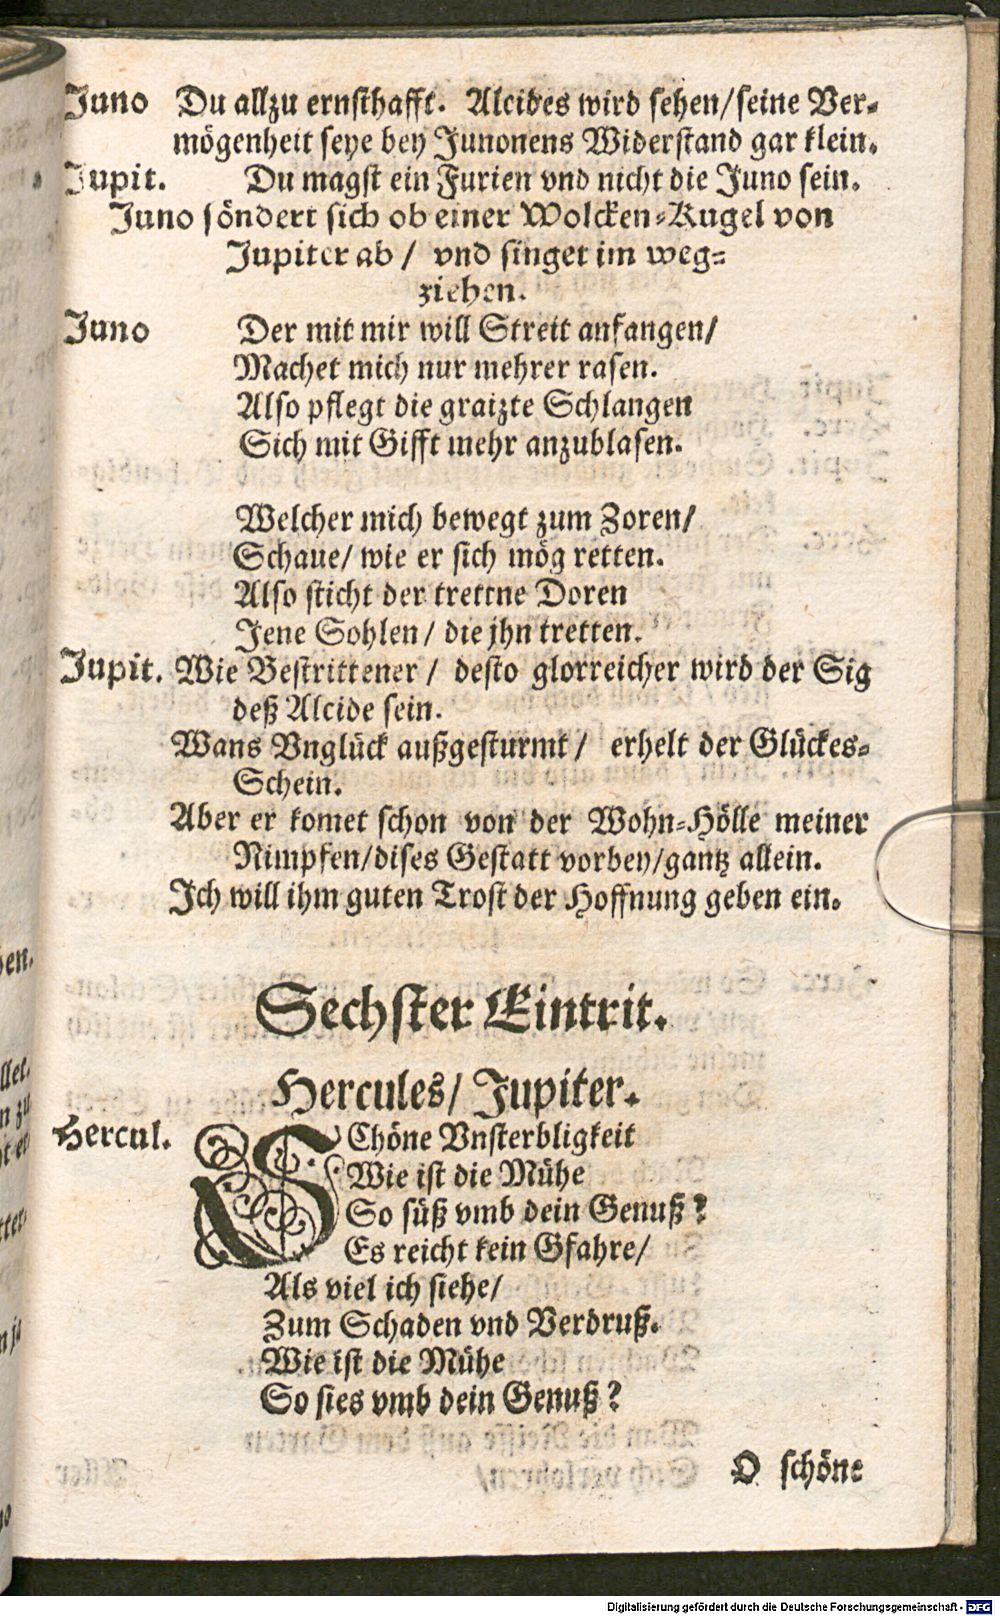 Juno Du allzu ernsthafft. Alcides wird sehen/seine Ver-
mögenheit seye bey Junonens Widerstand gar klein.
Jupit. Du magst ein Furien vnd nicht die Juno sein.
Juno söndert sich ob einer Wolcken-Kugel von
Jupiter ab / vnd singet im weg-
ziehen.
Juno Der mit mir will Streit anfangen/
Machet mich nur mehrer rasen.
Also pflegt die graizte Schlangen
Sich mit Gifft mehr anzublasen.
Welcher mich bewegt zum Zoren/
Schaue/ wie er sich mög retten.
Also sticht der trettne Doren
Jene Sohlen / die jhn tretten.
Jupit. Wie Bestrittener / desto glorreicher wird der Sig
deß Alcide sein.
Wans Vnglück außgesturmt / erhelt der Glückes-
Schein.
Aber er komet schon von der Wohn-Hölle meiner
Nimpfen/dises Gestatt vorbey/gantz allein.
Ich will ihm guten Trost der Hoffnung geben ein.
Sechster Eintrit.
Hercules/ Jupiter.
Hercul. SChöne Vnsterbligkeit
Wie ist die Mühe
So süß vmb dein Genuß?
Es reicht kein Gfahre/
Als viel ich siehe/
Zum Schaden vnd Verdruß.
Wie ist die Mühe
So sies vmb dein Genuß?
O schöne
Digitalisierung gefördert durch die Deutsche Forschungsgemeinschaft - DFG